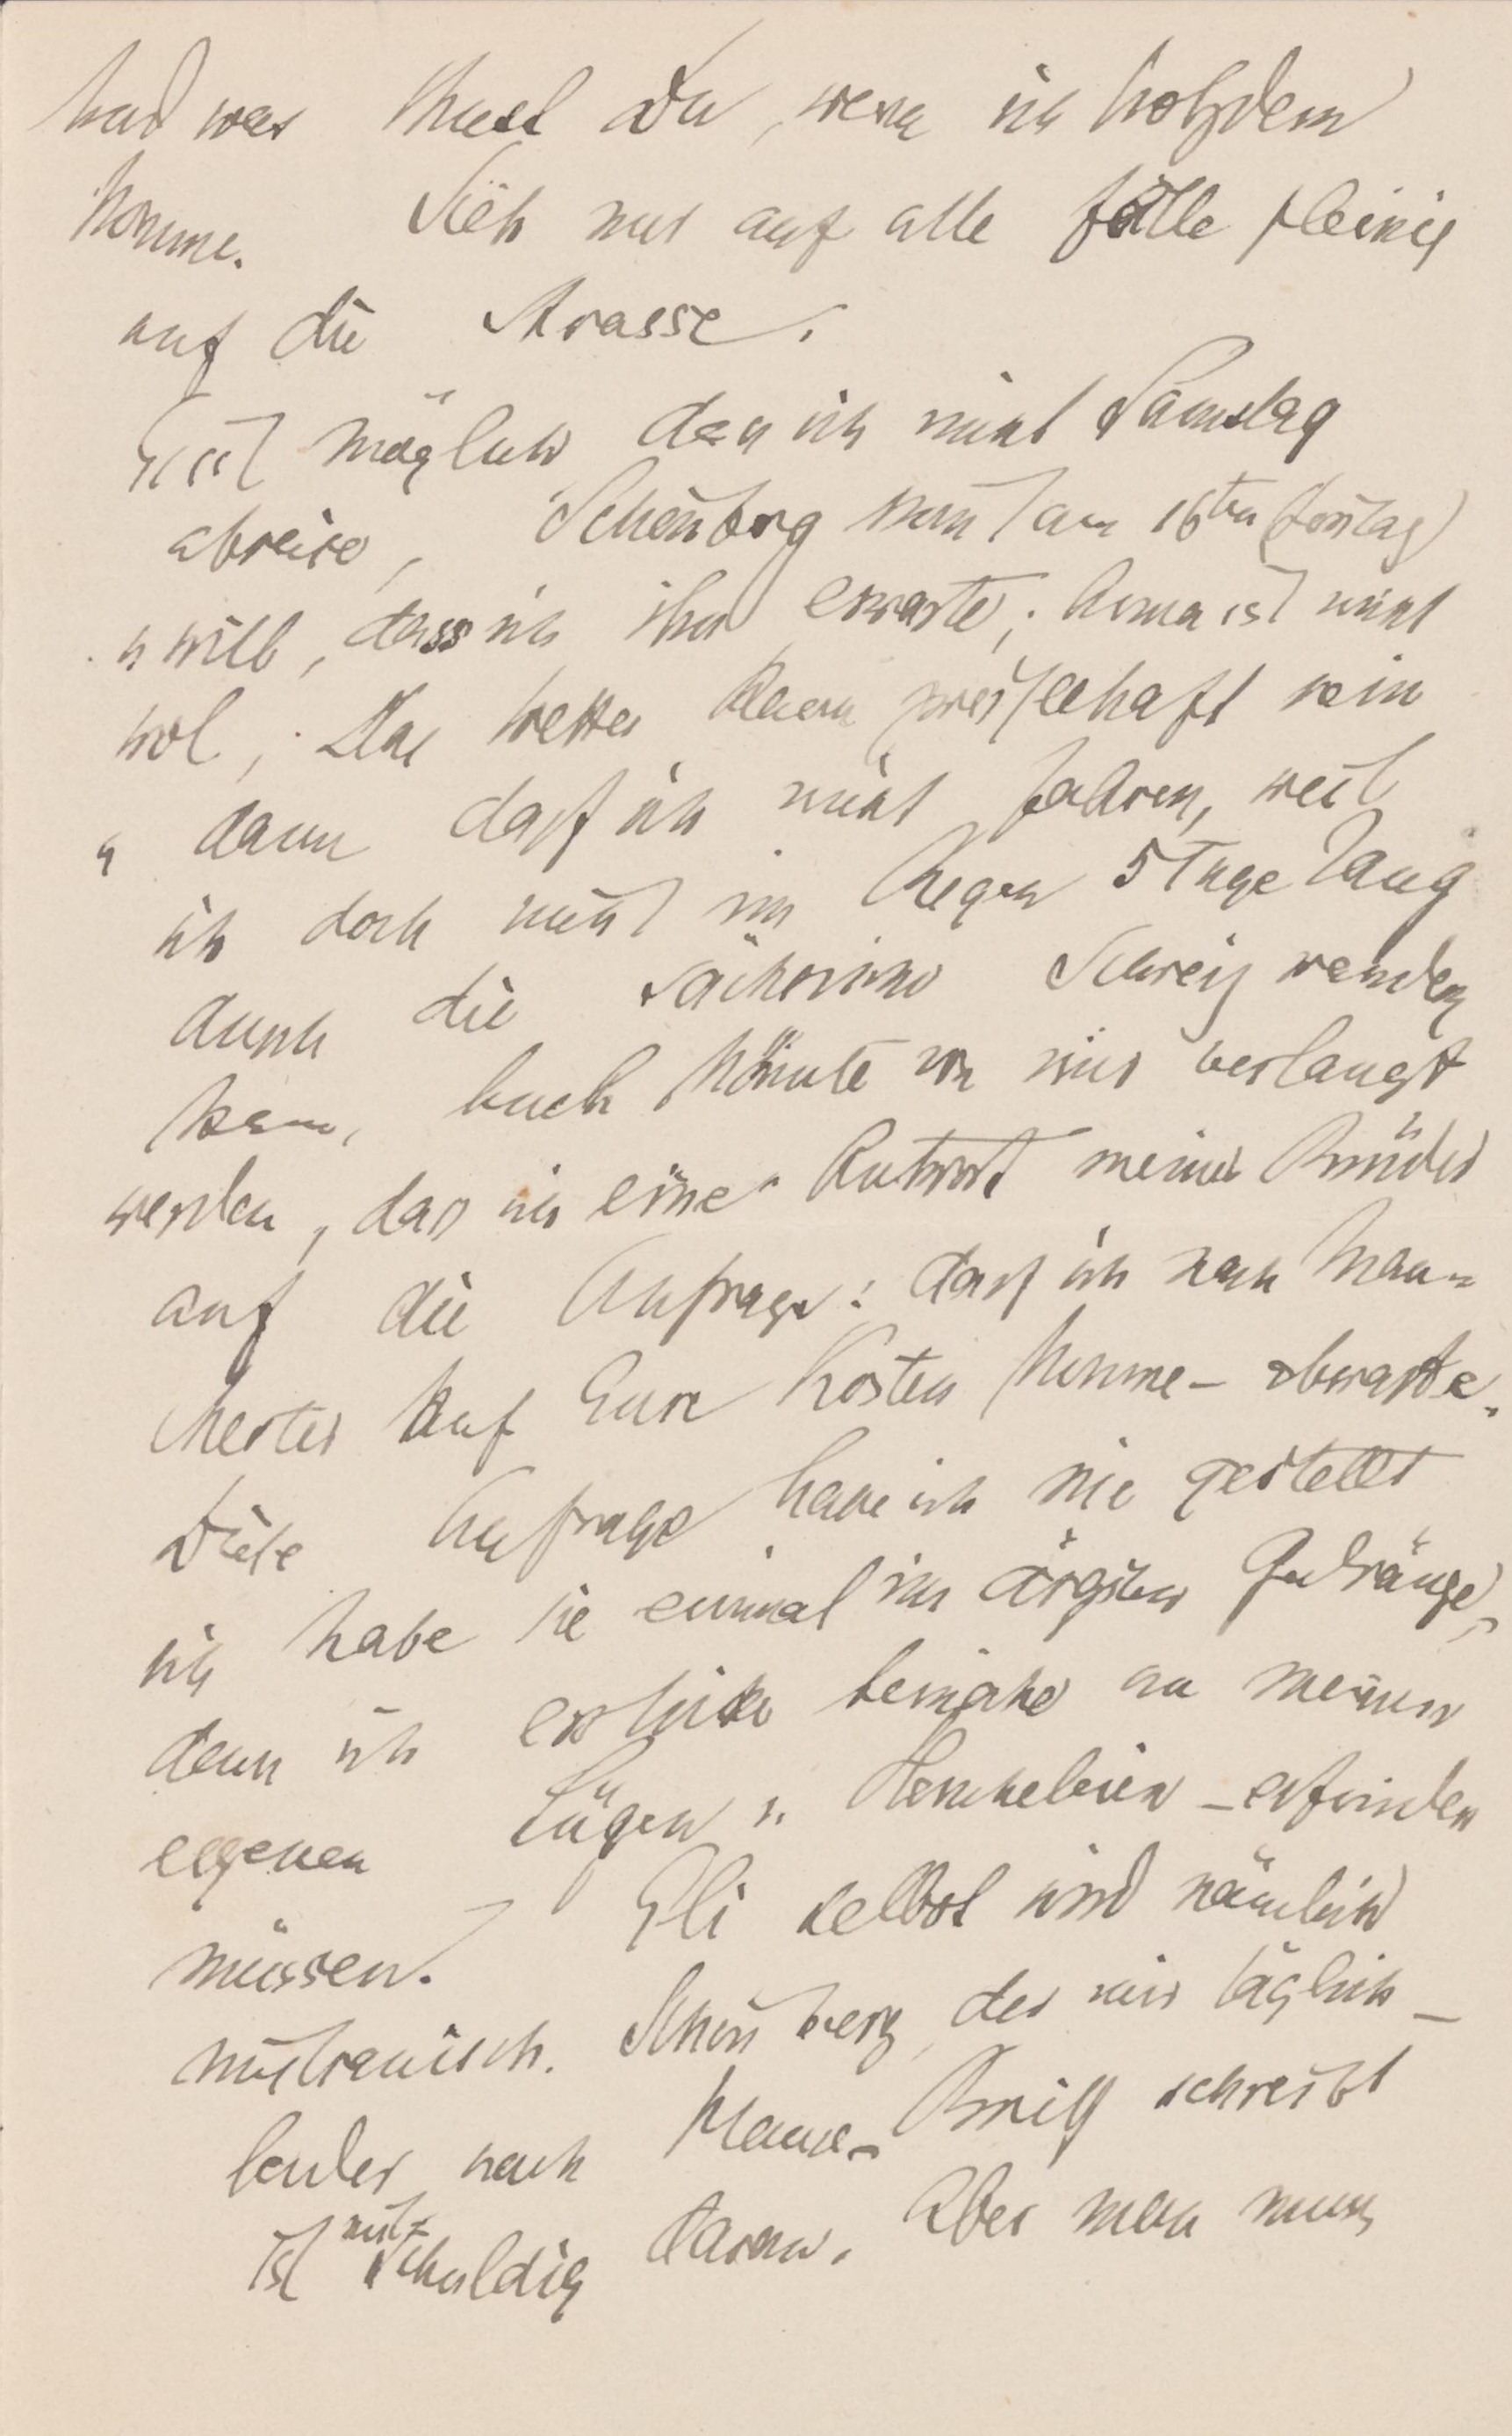 und was thust Du, wenn ich trotzdem
komme. Sieh nur auf alle fälle fleissig
auf die Strasse.
Es ist möglich dass ich nicht Samstag
abreise, Schönberg kommt am 16ten
u will, dass ich ihn erwarte; Anna ist nicht
wol; Das Wetter kann zweifelhaft sein
u dann darf ich nicht fahren, weil
ich doch nicht im Regen 5 Tage lang
durch die sächsische Schweiz wandern
kann, Auch könnte von mir verlangt
werden, dass ich eine Antwort meiner Brüder
auf die Anfrage: darf ich nach Man-
chester auf Eure Kosten kommen – abwarte.
Diese Anfrage habe ich nie gestellt
ich habe sie einmal im ärgsten Gedränge,
denn ich ersticke beinahe an meinen
eigenen Lügen u. Heucheleien – erfinden
müssen. Eli selbst wird nämlich
mistrauisch. Schönberg, der mir täglich –
leider auch Brief schreibt
ist mit schuldig daran. Aber man muss